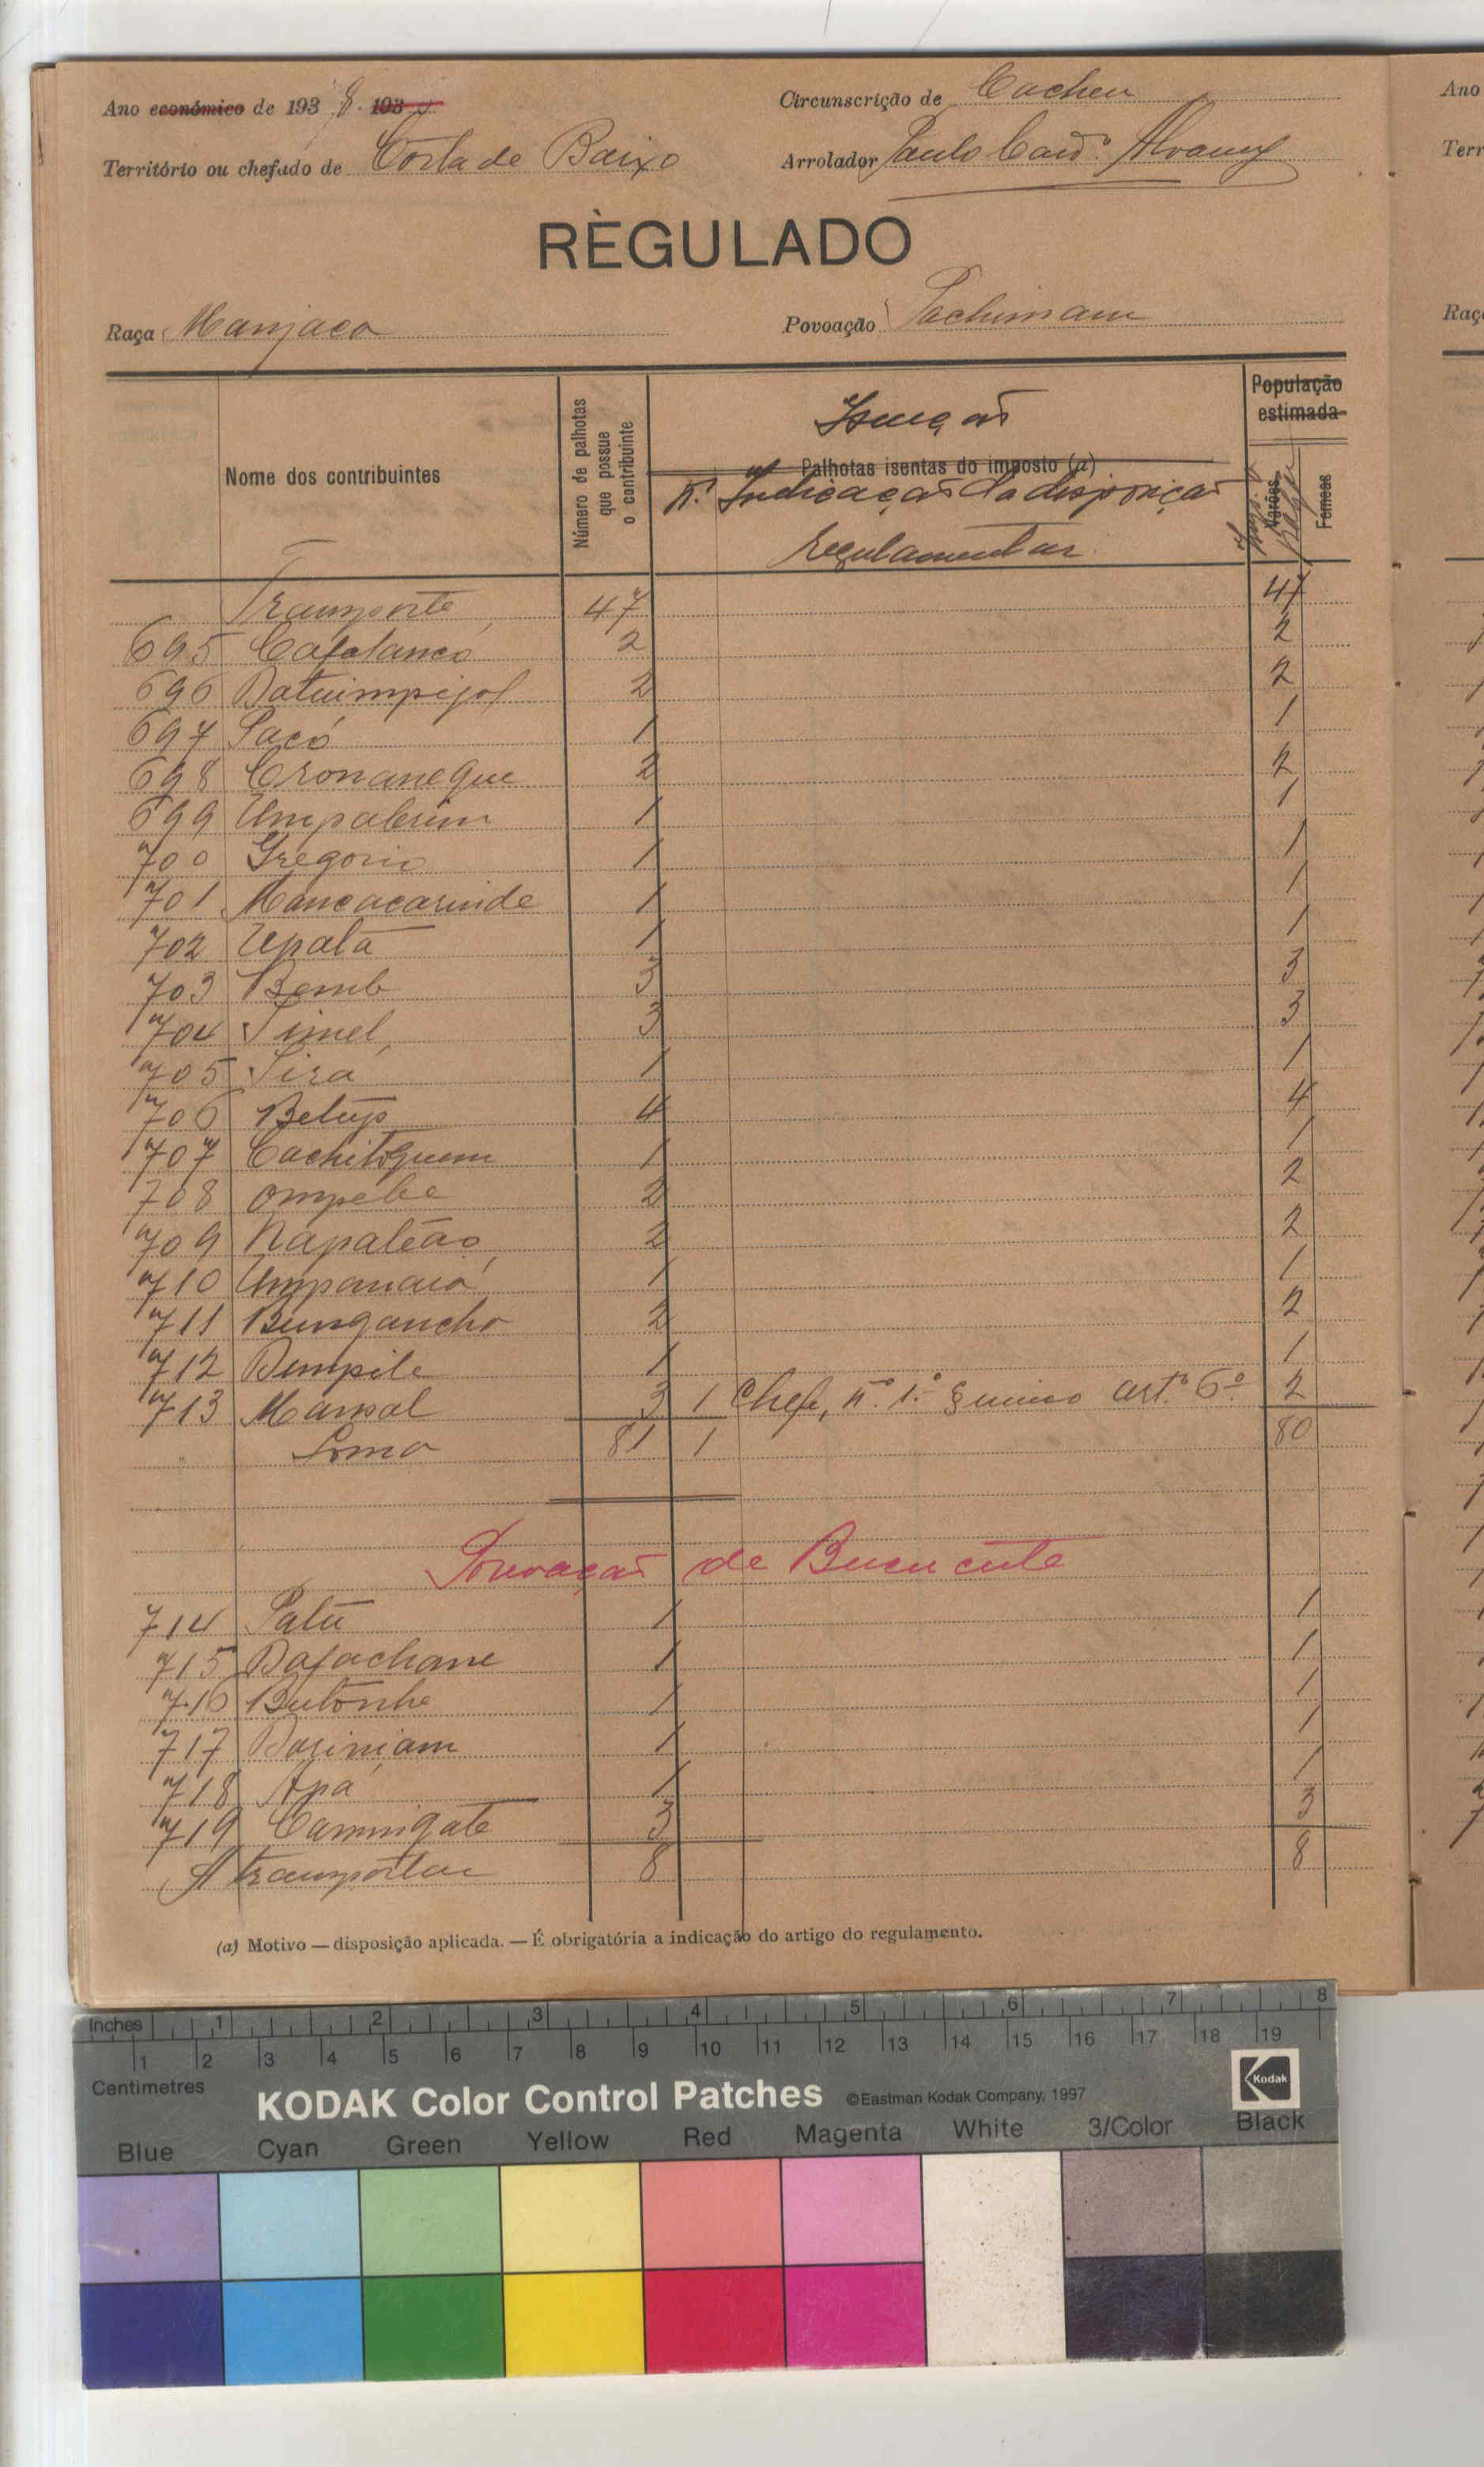 Ano económico de 1938 - 193
Circunscrição de Cacheu
Território ou chefado de Costa de Baixo
Arrolador Paulo Card.º Alvarez
RÈGULADO
Raça Manjaca
Povoação Pachimam
Nome dos contribuintes
Número de palhotas que possue o contribuinte
Isenções
Palhotas isentas do imposto (a)
N.º Indicação da disposição
regulamentar
População estimada
Varões
Fêmeas
Transporte 47 47
695 Cafalancó 2 2
696 Datuimpijol 2 2
697 Pacó 1 1
698 Cronaneque 2 2
699 Umpabrim 1 1
700 Gregorio 1 1
701 Mancacarinde 1 1
702 Upatá 1 1
703 Bemb 3 3
704 Timel 3 3
705 Tira 1 1
706 Betup 4 4
707 Cachitoquem 1 1
708 Ompebe 2 2
709 Napaleão 2 2
710 Umpanaió 1 1
711 Bungancho 2 2
712 Dempile 1 1
713 Marsal 3 1 Chefe, n.º 1.º § unico art.º 6.º 2
Soma 81 1 80
Povoação de Bucucute
714 Patú 1 1
715 Dafachane 1 1
716 Butonhe 1 1
717 Dasiniam 1 1
718 Apá 1 1
719 Camnigate 3 3
A transportar 8 8
(a) Motivo — disposição aplicada. — É obrigatória a indicação do artigo do regulamento.
Ano
Terr
Raç
Inches 1 2 3 4 5 6 7 8
1 2 3 4 5 6 7 8 9 10 11 12 13 14 15 16 17 18 19
Centimetres
KODAK Color Control Patches ©Eastman Kodak Company, 1997 Kodak
Blue Cyan Green Yellow Red Magenta White 3/Color Black